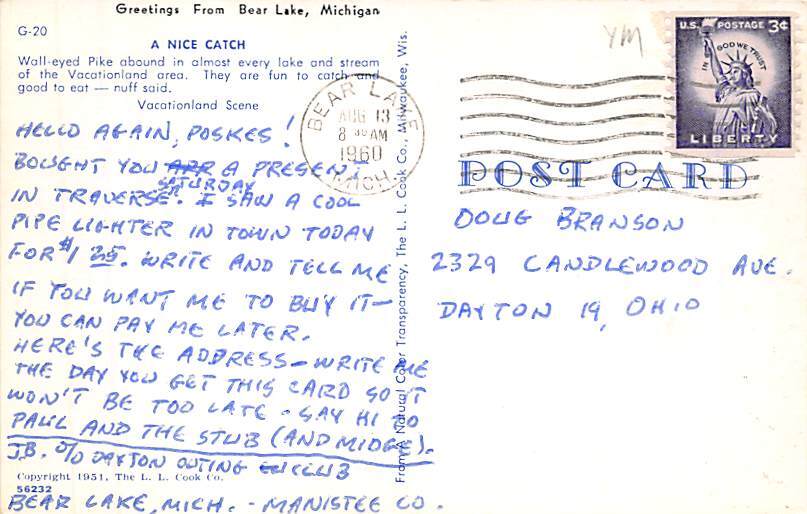 Greetings From Bear Lake, Michigan
G-20
A NICE CATCH
Wall-eyed Pike abound in almost every lake and stream
of the Vacationland area. They are fun to catch and
good to eat — nuff said.
Vacationland Scene
HELLO AGAIN, POSKES!
BOUGHT YOU A PRESENT
IN TRAVERSE SATURDAY. I SAW A COOL
PIPE LIGHTER IN TOWN TODAY
FOR $1 25. WRITE AND TELL ME
IF YOU WANT ME TO BUY IT—
YOU CAN PAY ME LATER.
HERE'S THE ADDRESS—WRITE ME
THE DAY YOU GET THIS CARD SO IT
WON'T BE TOO LATE - SAY HI TO
PAUL AND THE STUB (AND MIDGE).
J.B. % DAYTON OUTING CLUB
Copyright 1951, The L. L. Cook Co.
56232
BEAR LAKE, MICH. - MANISTEE CO.
From A Natural Color Transparency, The L. L. Cook Co., Milwaukee, Wis.
BEAR LAKE
AUG 13
8 30 AM
1960
MICH.
YM
U.S. POSTAGE 3¢
IN GOD WE TRUST
LIBERTY
POST CARD
DOUG BRANSON
2329 CANDLEWOOD AVE.
DAYTON 19, OHIO